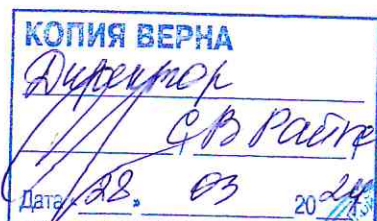 КОПИЯ ВЕРНА
Директор
С В
Дата « 28 » 03 2024